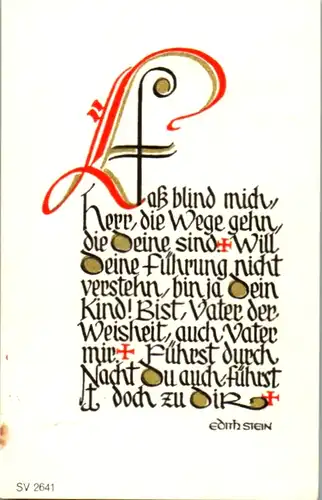 Laß blind mich,
Herr, die Wege gehn,
die Deine sind + Will
Deine Führung nicht
verstehn, bin ja Dein
Kind! Bist Vater der
Weisheit, auch Vater
mir + Führst durch
Nacht Du auch, führst
Du doch zu Dir +
EDITH STEIN
SV 2641